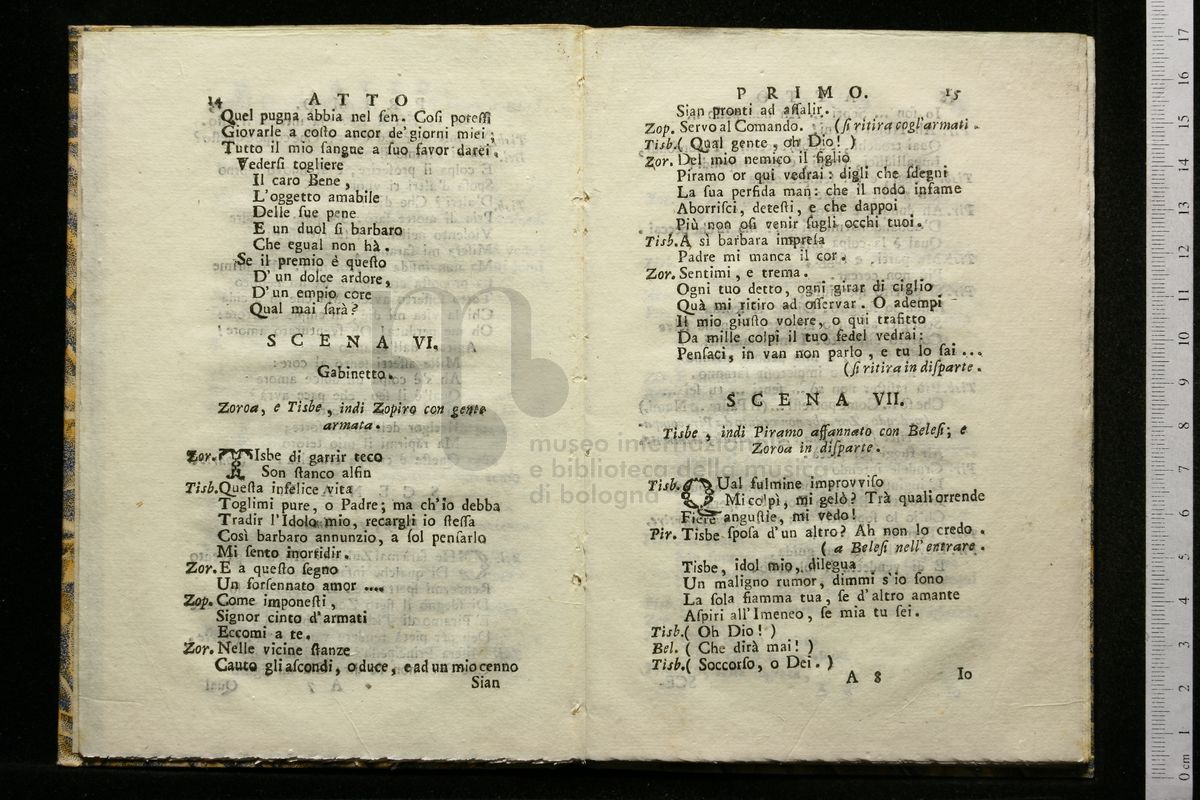 14 ATTO
Quel pugna abbia nel ſen. Coſi poteſſi
Giovarle a coſto ancor de'giorni miei;
Tutto il mio ſangue a ſuo favor darei.
Vederſi togliere
Il caro Bene,
L'oggetto amabile
Delle ſue pene
E un duol ſi barbaro
Che egual non hà.
Se il premio è queſto
D'un dolce ardore,
D'un empio core
Qual mai ſarà?
SCENA VI.
Gabinetto.
Zoroa, e Tisbe, indi Zopiro con gente
armata.
Zor. TIsbe di garrir teco
Son ſtanco alfin
Tisb. Queſta infelice vita
Toglimi pure, o Padre; ma ch'io debba
Tradir l'Idolo mio, recargli io ſteſſa
Così barbaro annunzio, a ſol penſarlo
Mi ſento inorridir.
Zor. E a queſto ſegno
Un forſennato amor ....
Zop. Come imponeſti,
Signor cinto d'armati
Eccomi a te.
Zor. Nelle vicine ſtanze
Cauto gli aſcondi, o duce, e ad un mio cenno
Sian
PRIMO. 15
Sian pronti ad aſſalir.
Zop. Servo al Comando. (ſi ritira cogl'armati.
Tisb. ( Qual gente, oh Dio! )
Zor. Del mio nemico il figlio
Piramo or qui vedrai: digli che ſdegni
La ſua perfida man: che il nodo infame
Aborriſci, deteſti, e che dappoi
Più non oſi venir ſugli occhi tuoi.
Tisb. A sì barbara impreſa
Padre mi manca il cor.
Zor. Sentimi, e trema.
Ogni tuo detto, ogni girar di ciglio
Quà mi ritiro ad oſſervar. O adempi
Il mio giuſto volere, o qui trafitto
Da mille colpi il tuo fedel vedrai:
Penſaci, in van non parlo, e tu lo ſai ...
(ſi ritira in diſparte.
SCENA VII.
Tisbe, indi Piramo affannato con Beleſi; e
Zoroa in diſparte.
Tisb. QUal fulmine improvviſo
Mi colpì, mi gelò? Trà quali orrende
Fiere anguſtie, mi vedo!
Pir. Tisbe ſpoſa d'un altro? Ah non lo credo.
( a Beleſi nell'entrare.
Tisbe, idol mio, dilegua
Un maligno rumor, dimmi s'io ſono
La ſola fiamma tua, ſe d'altro amante
Aſpiri all'Imeneo, ſe mia tu ſei.
Tisb. ( Oh Dio! )
Bel. ( Che dirà mai! )
Tisb. ( Soccorſo, o Dei. )
A 8 Io
museo internazionale
e biblioteca della musica
di bologna
0 cm 1 2 3 4 5 6 7 8 9 10 11 12 13 14 15 16 17